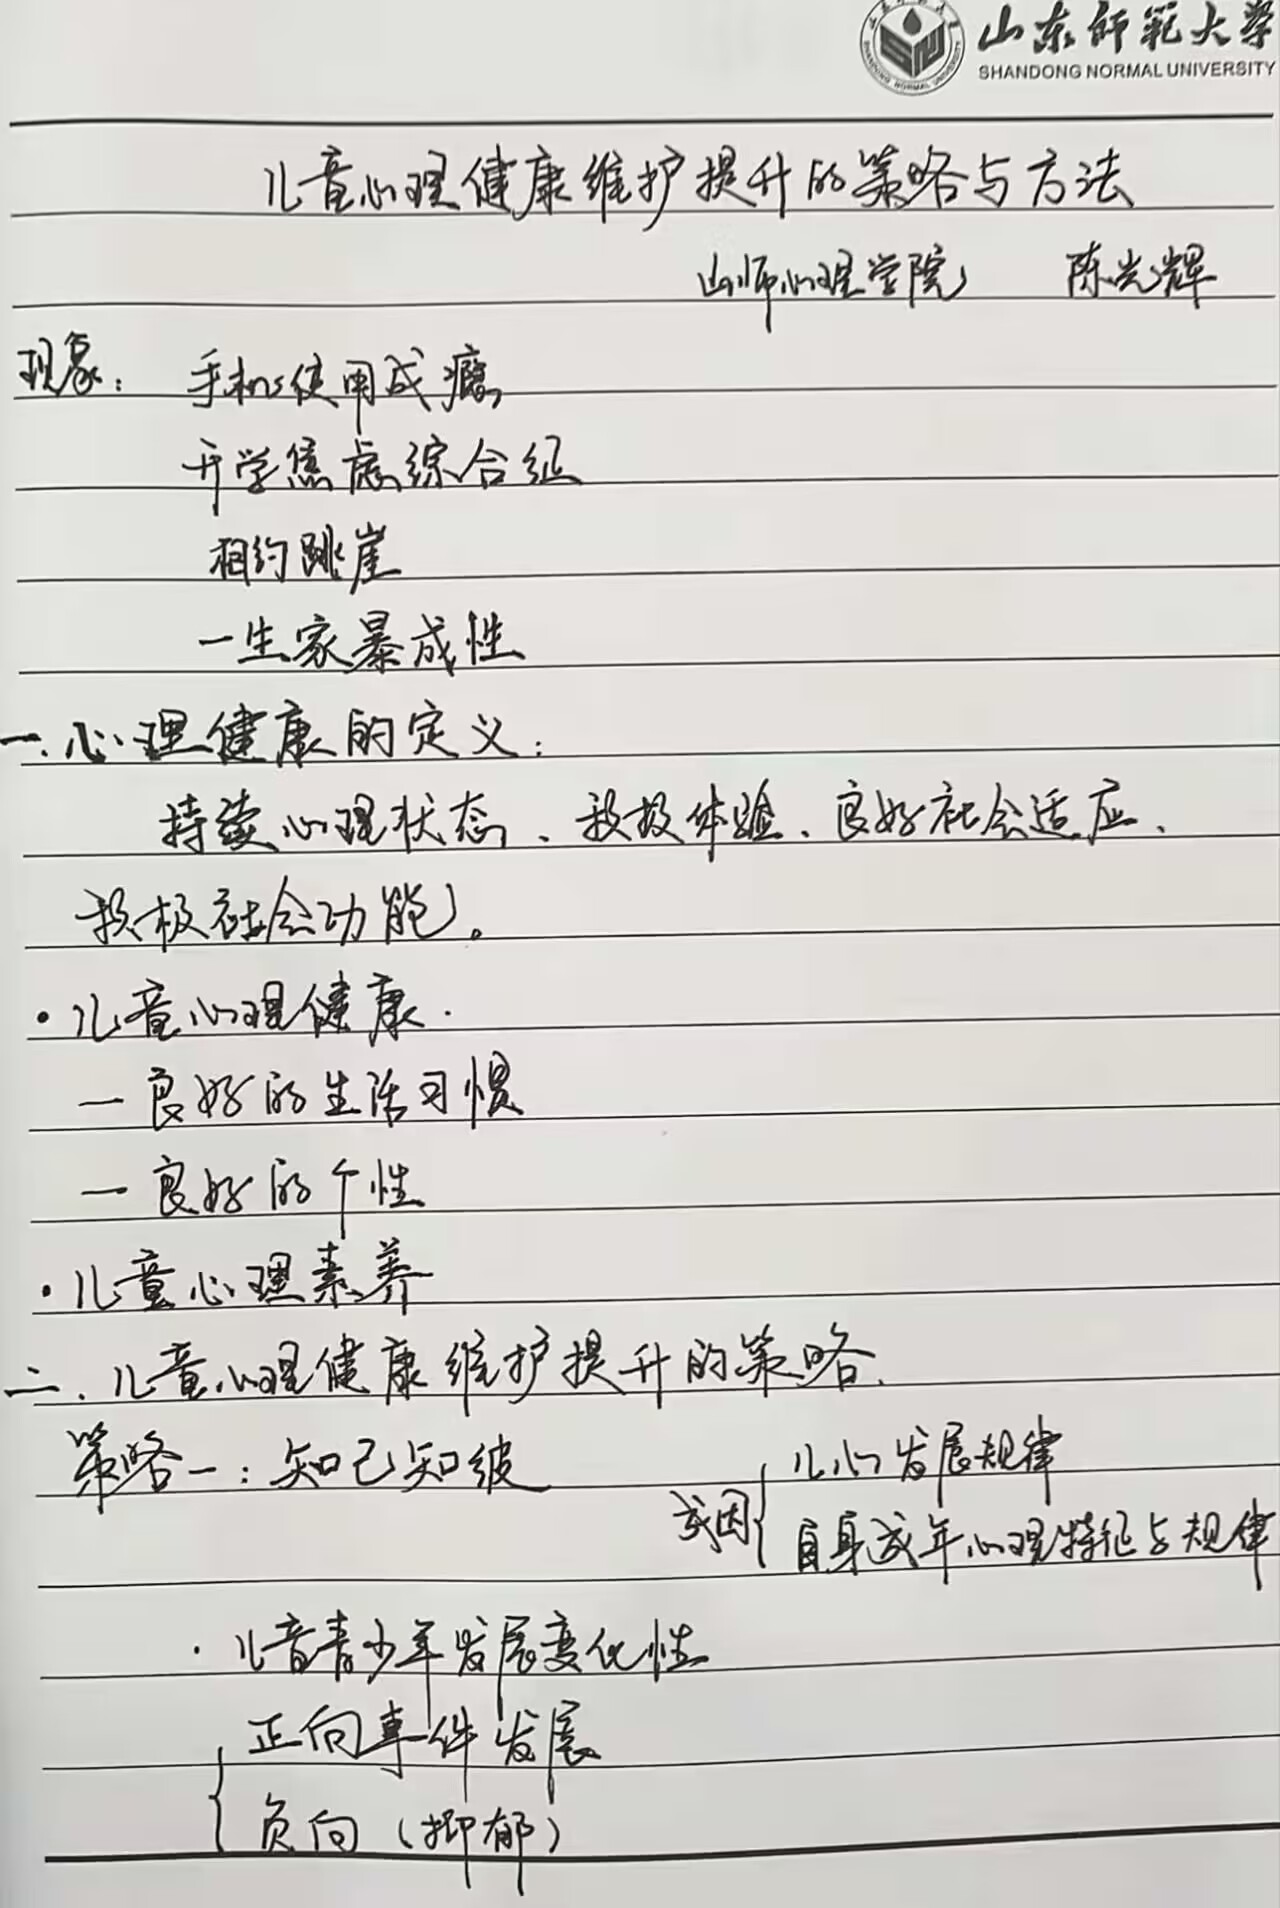 山东师范大学
SHANDONG NORMAL UNIVERSITY
儿童心理健康维护提升的策略与方法
山师心理学院 陈光辉
现象：手机使用成瘾
开学焦虑综合征
相约跳崖
一生家暴成性
一、心理健康的定义：
持续心理状态、积极体验、良好社会适应、
积极社会功能。
·儿童心理健康.
一良好的生活习惯
一良好的个性
·儿童心理素养
二、儿童心理健康维护提升的策略.
策略一：知己知彼
成因{儿心发展规律
自身成年心理特征与规律
·儿童青少年发展变化性
{正向事件发展
负向（抑郁）